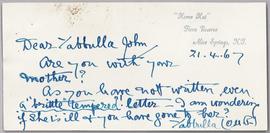 "Home Hut"
Flora Reserve
Alice Springs, N.T.
21.4.67
Dear Yabbulla John
Are you with your
Mother?
As you have not written, even
a "brittle tempered" letter - I am wondering
if she is ill & you have gone to her?
Yabbulla (OMB)